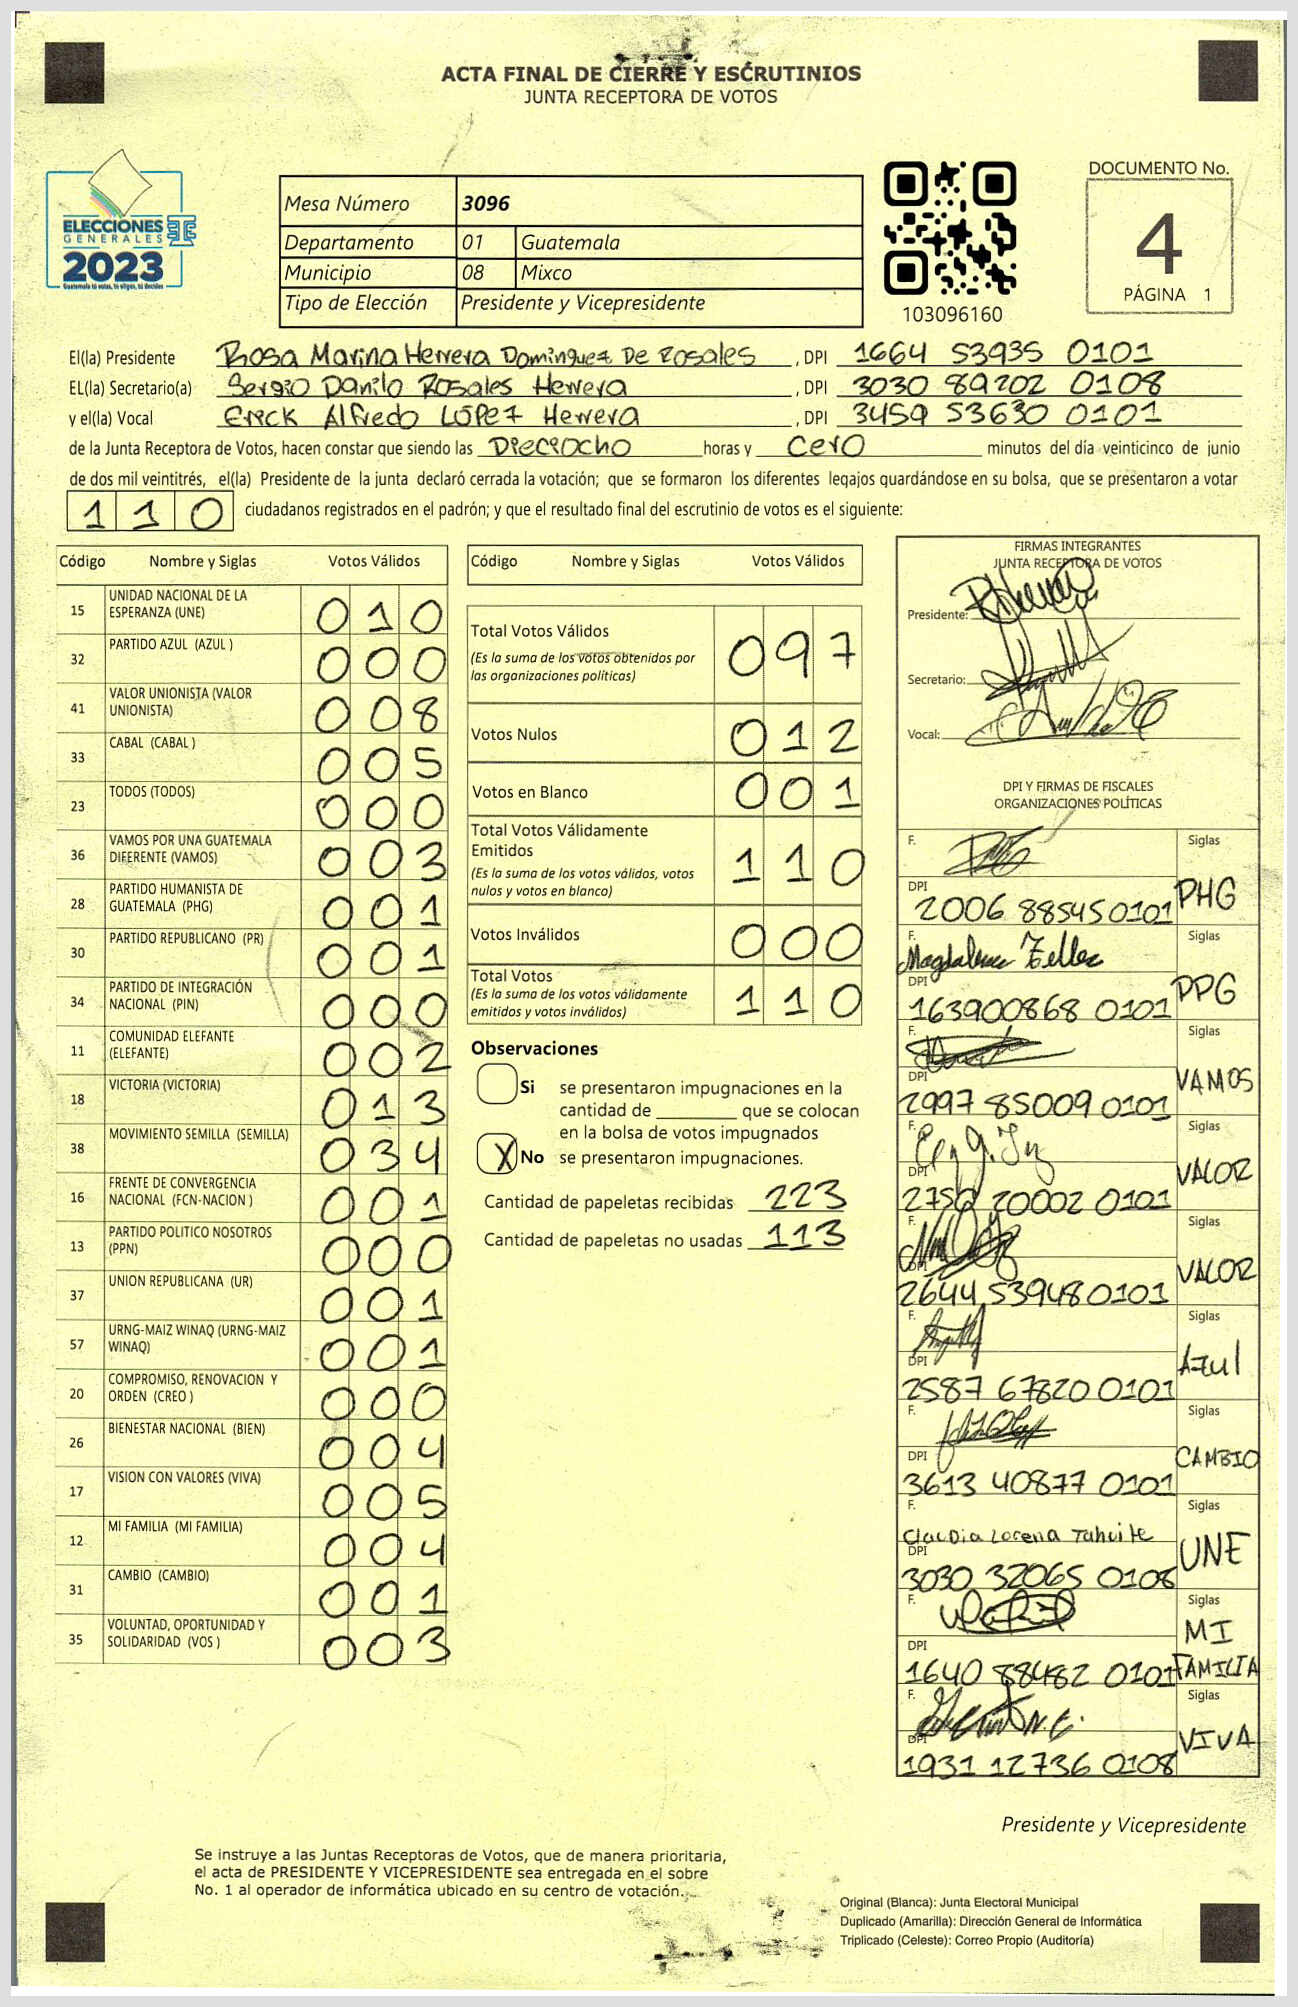 ACTA FINAL DE CIERRE Y ESCRUTINIOS
JUNTA RECEPTORA DE VOTOS
ELECCIONES
GENERALES
2023
Guatemala tú votas, tú eliges, tú decides
Mesa Número 3096
Departamento 01 Guatemala
Municipio 08 Mixco
Tipo de Elección Presidente y Vicepresidente
103096160
DOCUMENTO No.
4
PÁGINA 1
El(la) Presidente Rosa Marina Herrera Domínguez De Rosales, DPI 1664 53935 0101
EL(la) Secretario(a) Sergio Danilo Rosales Herrera, DPI 3030 89202 0108
y el(la) Vocal Erick Alfredo López Herrera, DPI 3459 53630 0101
de la Junta Receptora de Votos, hacen constar que siendo las Dieciocho horas y cero minutos del día veinticinco de junio
de dos mil veintitrés, el(la) Presidente de la junta declaró cerrada la votación; que se formaron los diferentes legajos guardándose en su bolsa, que se presentaron a votar
110 ciudadanos registrados en el padrón; y que el resultado final del escrutinio de votos es el siguiente:
Código Nombre y Siglas Votos Válidos
15 UNIDAD NACIONAL DE LA ESPERANZA (UNE) 010
32 PARTIDO AZUL (AZUL ) 000
41 VALOR UNIONISTA (VALOR UNIONISTA) 008
33 CABAL (CABAL ) 005
23 TODOS (TODOS) 000
36 VAMOS POR UNA GUATEMALA DIFERENTE (VAMOS) 003
28 PARTIDO HUMANISTA DE GUATEMALA (PHG) 001
30 PARTIDO REPUBLICANO (PR) 001
34 PARTIDO DE INTEGRACIÓN NACIONAL (PIN) 000
11 COMUNIDAD ELEFANTE (ELEFANTE) 002
18 VICTORIA (VICTORIA) 013
38 MOVIMIENTO SEMILLA (SEMILLA) 034
16 FRENTE DE CONVERGENCIA NACIONAL (FCN-NACION ) 001
13 PARTIDO POLITICO NOSOTROS (PPN) 000
37 UNION REPUBLICANA (UR) 001
57 URNG-MAIZ WINAQ (URNG-MAIZ WINAQ) 001
20 COMPROMISO, RENOVACION Y ORDEN (CREO ) 000
26 BIENESTAR NACIONAL (BIEN) 004
17 VISION CON VALORES (VIVA) 005
12 MI FAMILIA (MI FAMILIA) 004
31 CAMBIO (CAMBIO) 001
35 VOLUNTAD, OPORTUNIDAD Y SOLIDARIDAD (VOS ) 003
Código Nombre y Siglas Votos Válidos
Total Votos Válidos 097
(Es la suma de los votos obtenidos por
las organizaciones políticas)
Votos Nulos 012
Votos en Blanco 001
Total Votos Válidamente
Emitidos 110
(Es la suma de los votos válidos, votos
nulos y votos en blanco)
Votos Inválidos 000
Total Votos 110
(Es la suma de los votos válidamente
emitidos y votos inválidos)
Observaciones
Si se presentaron impugnaciones en la
cantidad de ________ que se colocan
en la bolsa de votos impugnados
X No se presentaron impugnaciones.
Cantidad de papeletas recibidas 223
Cantidad de papeletas no usadas 113
FIRMAS INTEGRANTES
JUNTA RECEPTORA DE VOTOS
Presidente:
Secretario:
Vocal:
DPI Y FIRMAS DE FISCALES
ORGANIZACIONES POLÍTICAS
F. Siglas
DPI 2006 88545 0101 PHG
F. Magdalena Siglas
DPI 163900868 0101 PPG
F. Siglas
DPI 2997 85009 0101 VAMOS
F. Siglas
DPI 20002 0101 VALOR
F. Siglas
DPI 2644 53948 0101 VALOR
F. Siglas
DPI 2587 67820 0101 Azul
F. Siglas
DPI 3613 40877 0101 CAMBIO
F. Claudia Lorena Tahuite Siglas
DPI 3030 32065 0108 UNE
F. Siglas
DPI 1640 88482 0101 MI FAMILIA
F. Siglas
DPI 1931 12736 0108 VIVA
Presidente y Vicepresidente
Se instruye a las Juntas Receptoras de Votos, que de manera prioritaria,
el acta de PRESIDENTE Y VICEPRESIDENTE sea entregada en el sobre
No. 1 al operador de informática ubicado en su centro de votación.
Original (Blanca): Junta Electoral Municipal
Duplicado (Amarilla): Dirección General de Informática
Triplicado (Celeste): Correo Propio (Auditoría)